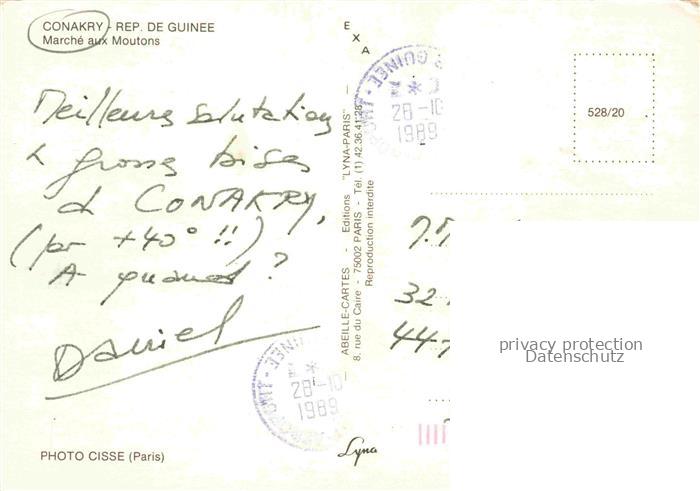 CONAKRY - REP. DE GUINEE
Marché aux Moutons
Meilleures salutations
& grosses bises
de CONAKRY,
(par +40° !!)
A quand ?
Daniel
PHOTO CISSE (Paris)
E
X
A
ABEILLE-CARTES - Editions "LYNA-PARIS" -
8, rue du Caire - 75002 PARIS - Tél. (1) 42.36.41.28
Reproduction interdite
Lyna
GUINEE
28-10
1989
GUINEE
28-10
1989
528/20
32
44
privacy protection
Datenschutz